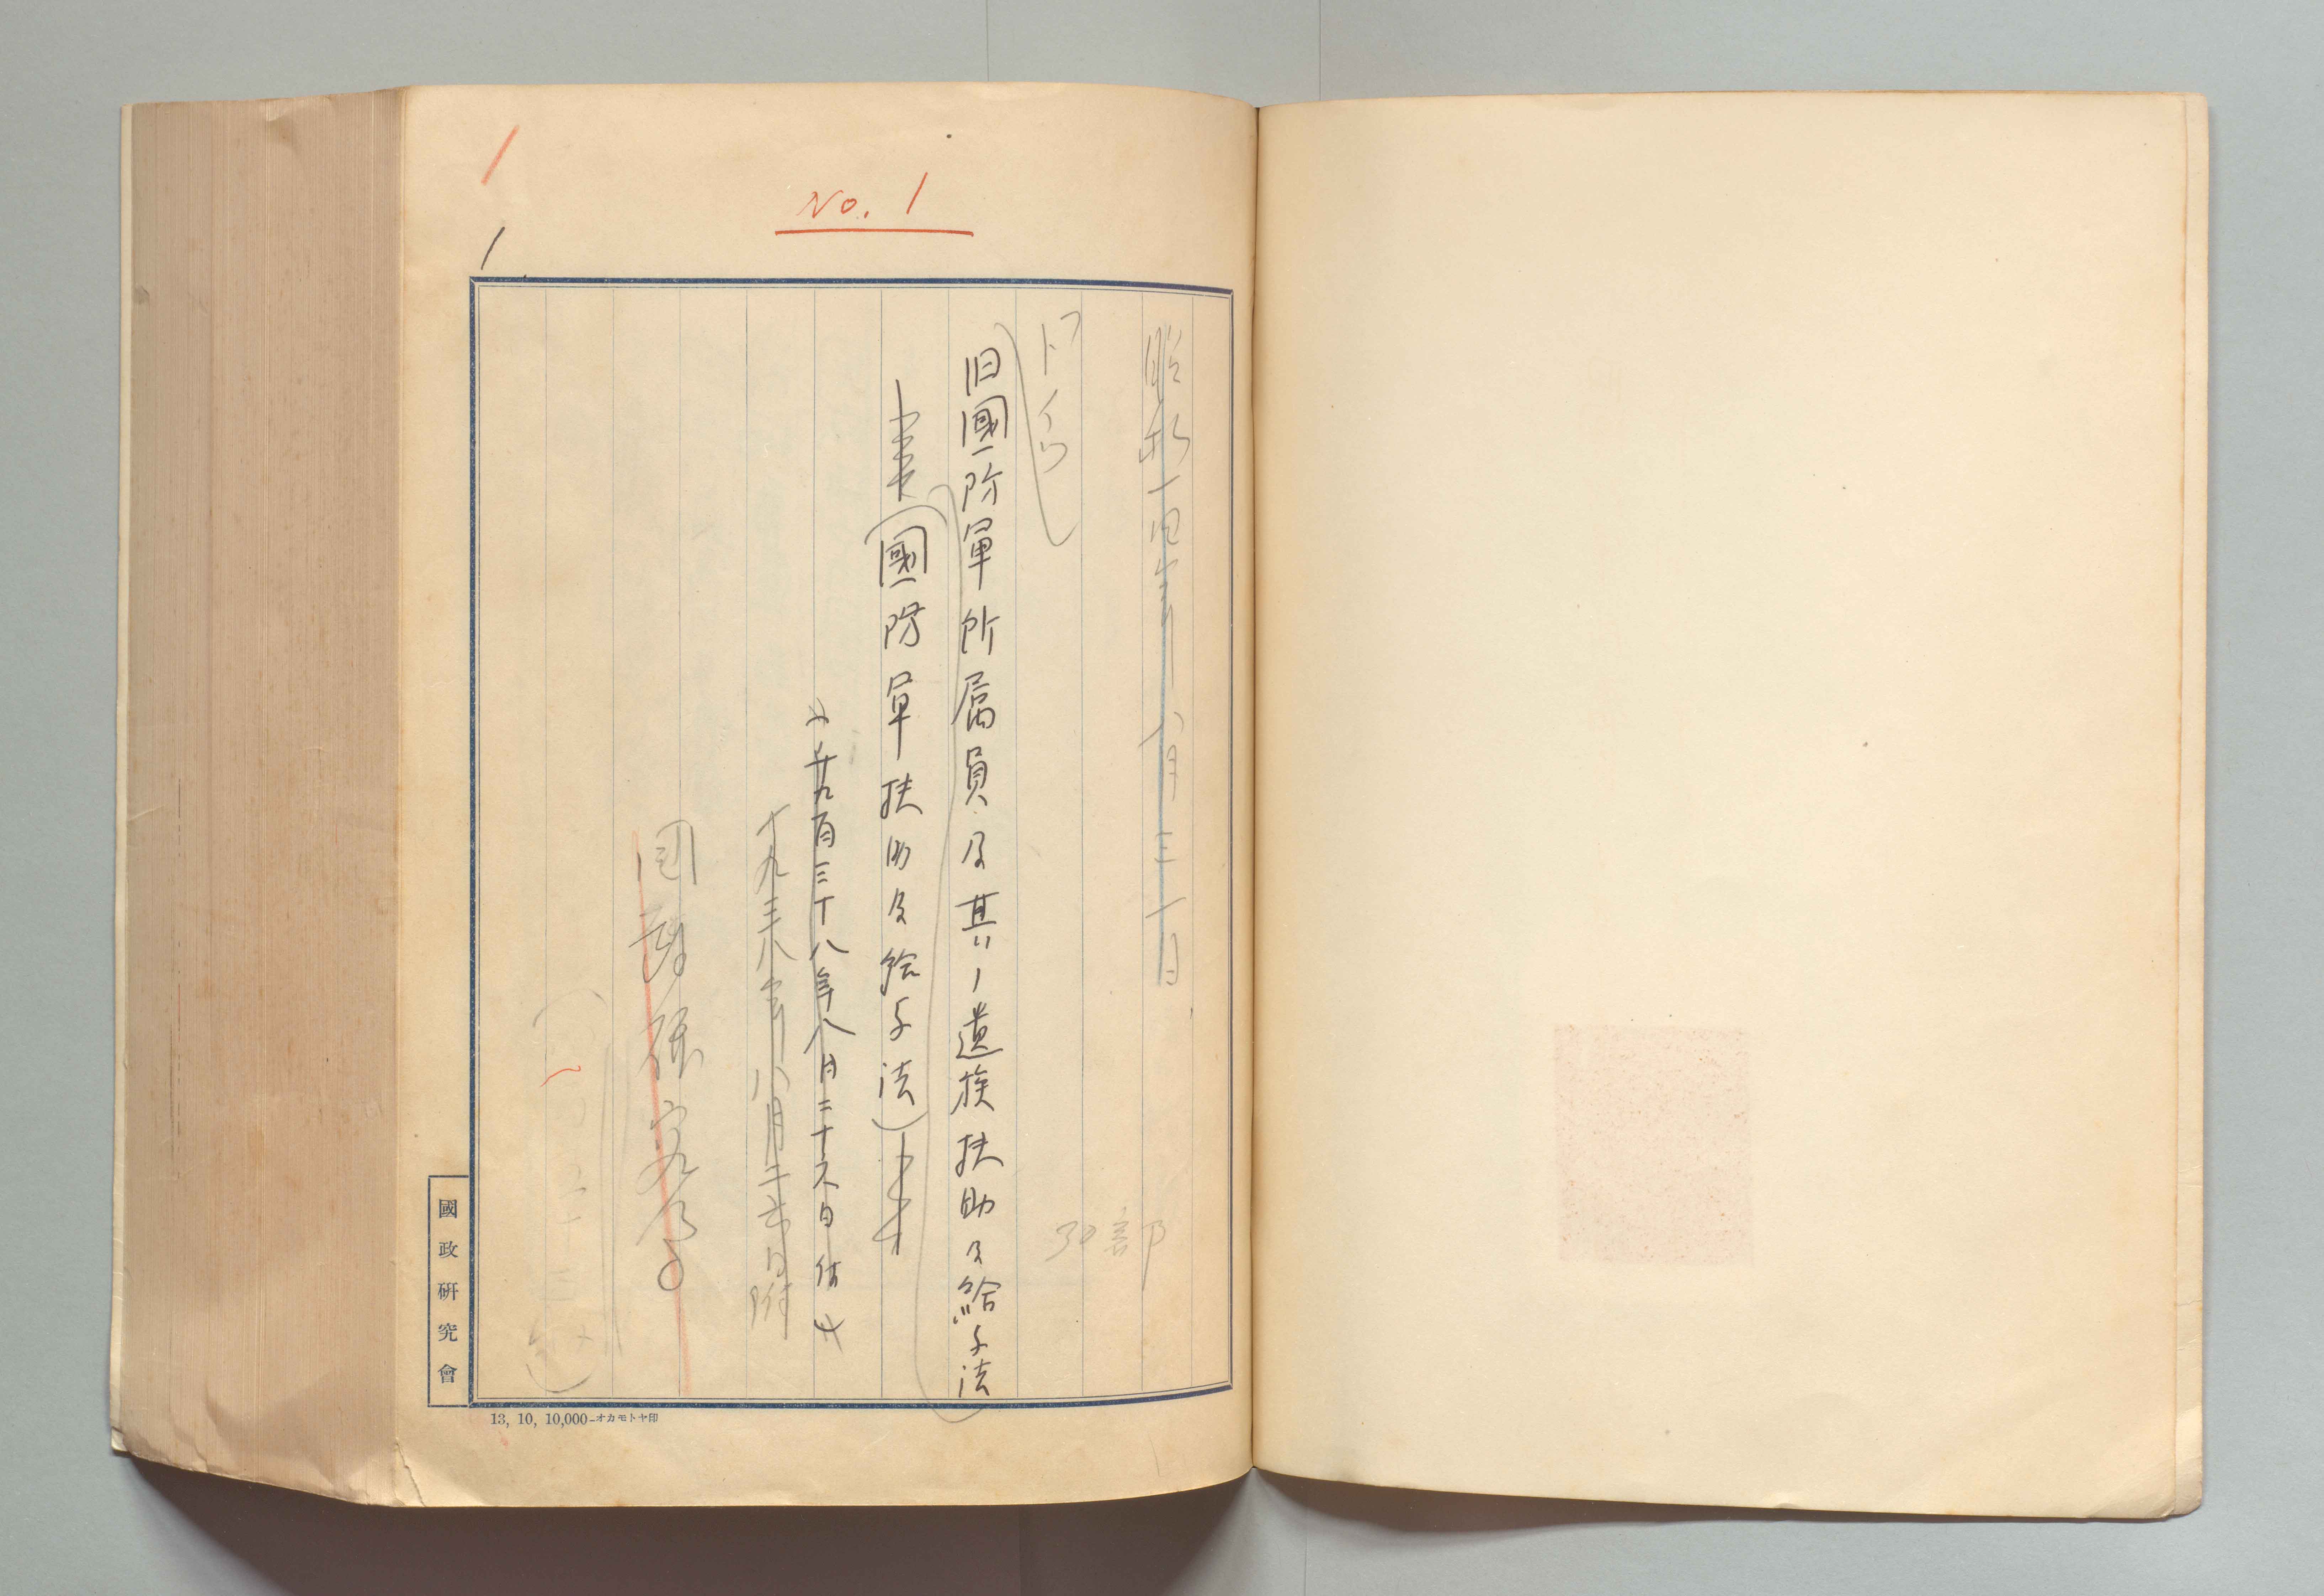 1
No. 1
1
昭和一四年八月三一日
30部
ドイツ
旧國防軍所属員及其ノ遺族扶助及給与法
(國防軍扶助及給与法)
千九百三十八年八月二十六日付
十九三八年八月二六日附
國政研究會
13, 10, 10,000-オカモトヤ印